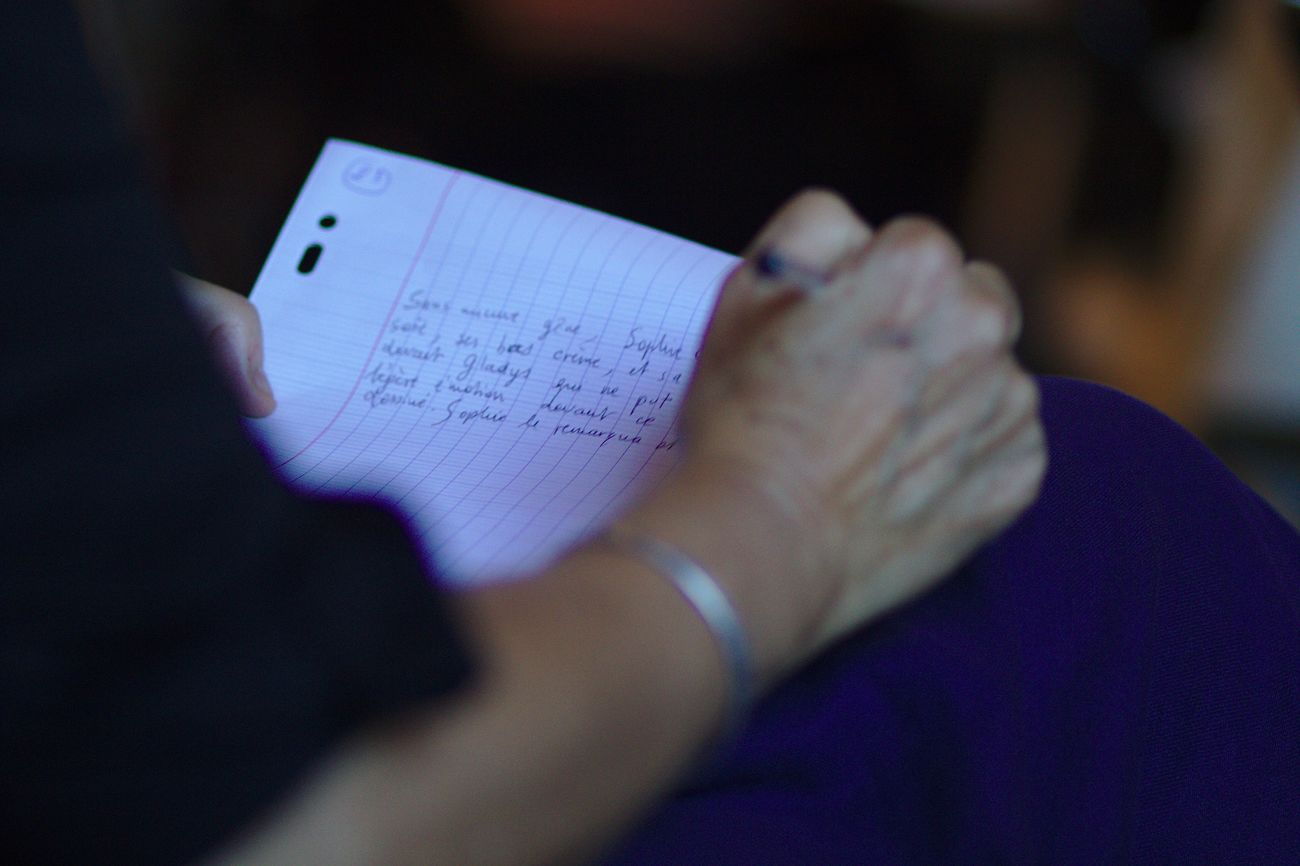 Sans aucune gêne, Sophie
soie, ses bas crème, et s'a
devant Gladys qui ne put
légère émotion devant ce
dessiné. Sophie le remarqua